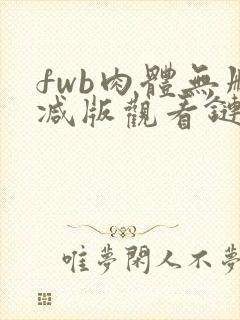 fwb肉體無刪
减版觀看鏈
唯夢閑人不夢